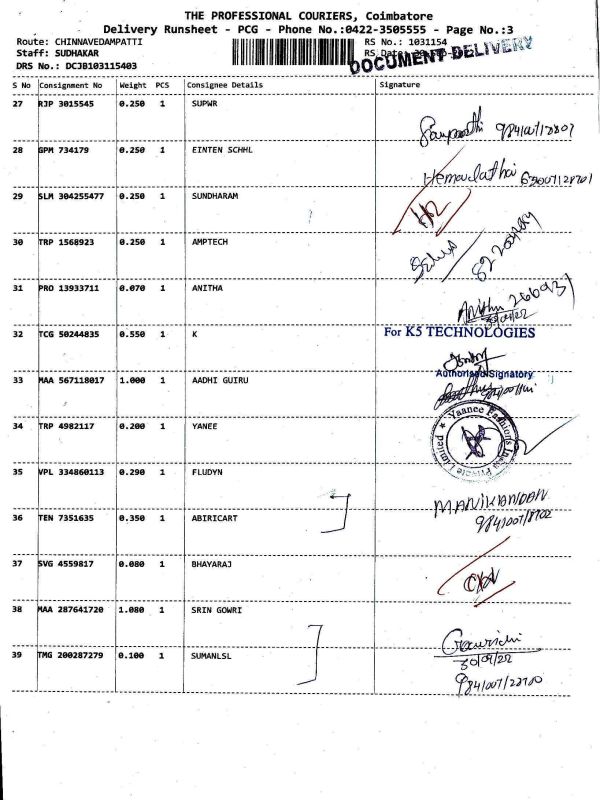 THE PROFESSIONAL COURIERS, Coimbatore
Delivery Runsheet - PCG - Phone No.:0422-3505555 - Page No.:3
Route: CHINNAVEDAMPATTI RS No.: 1031154
Staff: SUDHAKAR RS Date:
DOCUMENT DELIVERY
DRS No.: DCJB103115403
S No Consignment No Weight PCS Consignee Details Signature
27 RJP 3015545 0.250 1 SUPWR
28 GPM 734179 0.250 1 EINTEN SCHHL
Hemavlathai
29 SLM 304255477 0.250 1 SUNDHARAM
30 TRP 1568923 0.250 1 AMPTECH
31 PRO 13933711 0.070 1 ANITHA
Anitha
30/09/22
32 TCG 50244835 0.550 1 K
For K5 TECHNOLOGIES
Authorised Signatory
33 MAA 567118017 1.000 1 AADHI GUIRU
34 TRP 4982117 0.200 1 YANEE
Yaanee Fashions India Private Limited
35 VPL 334860113 0.290 1 FLUDYN
MANIKANDAN
36 TEN 7351635 0.350 1 ABIRICART
9841007/8702
37 SVG 4559817 0.080 1 BHAYARAJ
38 MAA 287641720 1.080 1 SRIN GOWRI
39 TMG 200287279 0.100 1 SUMANLSL
30/09/22